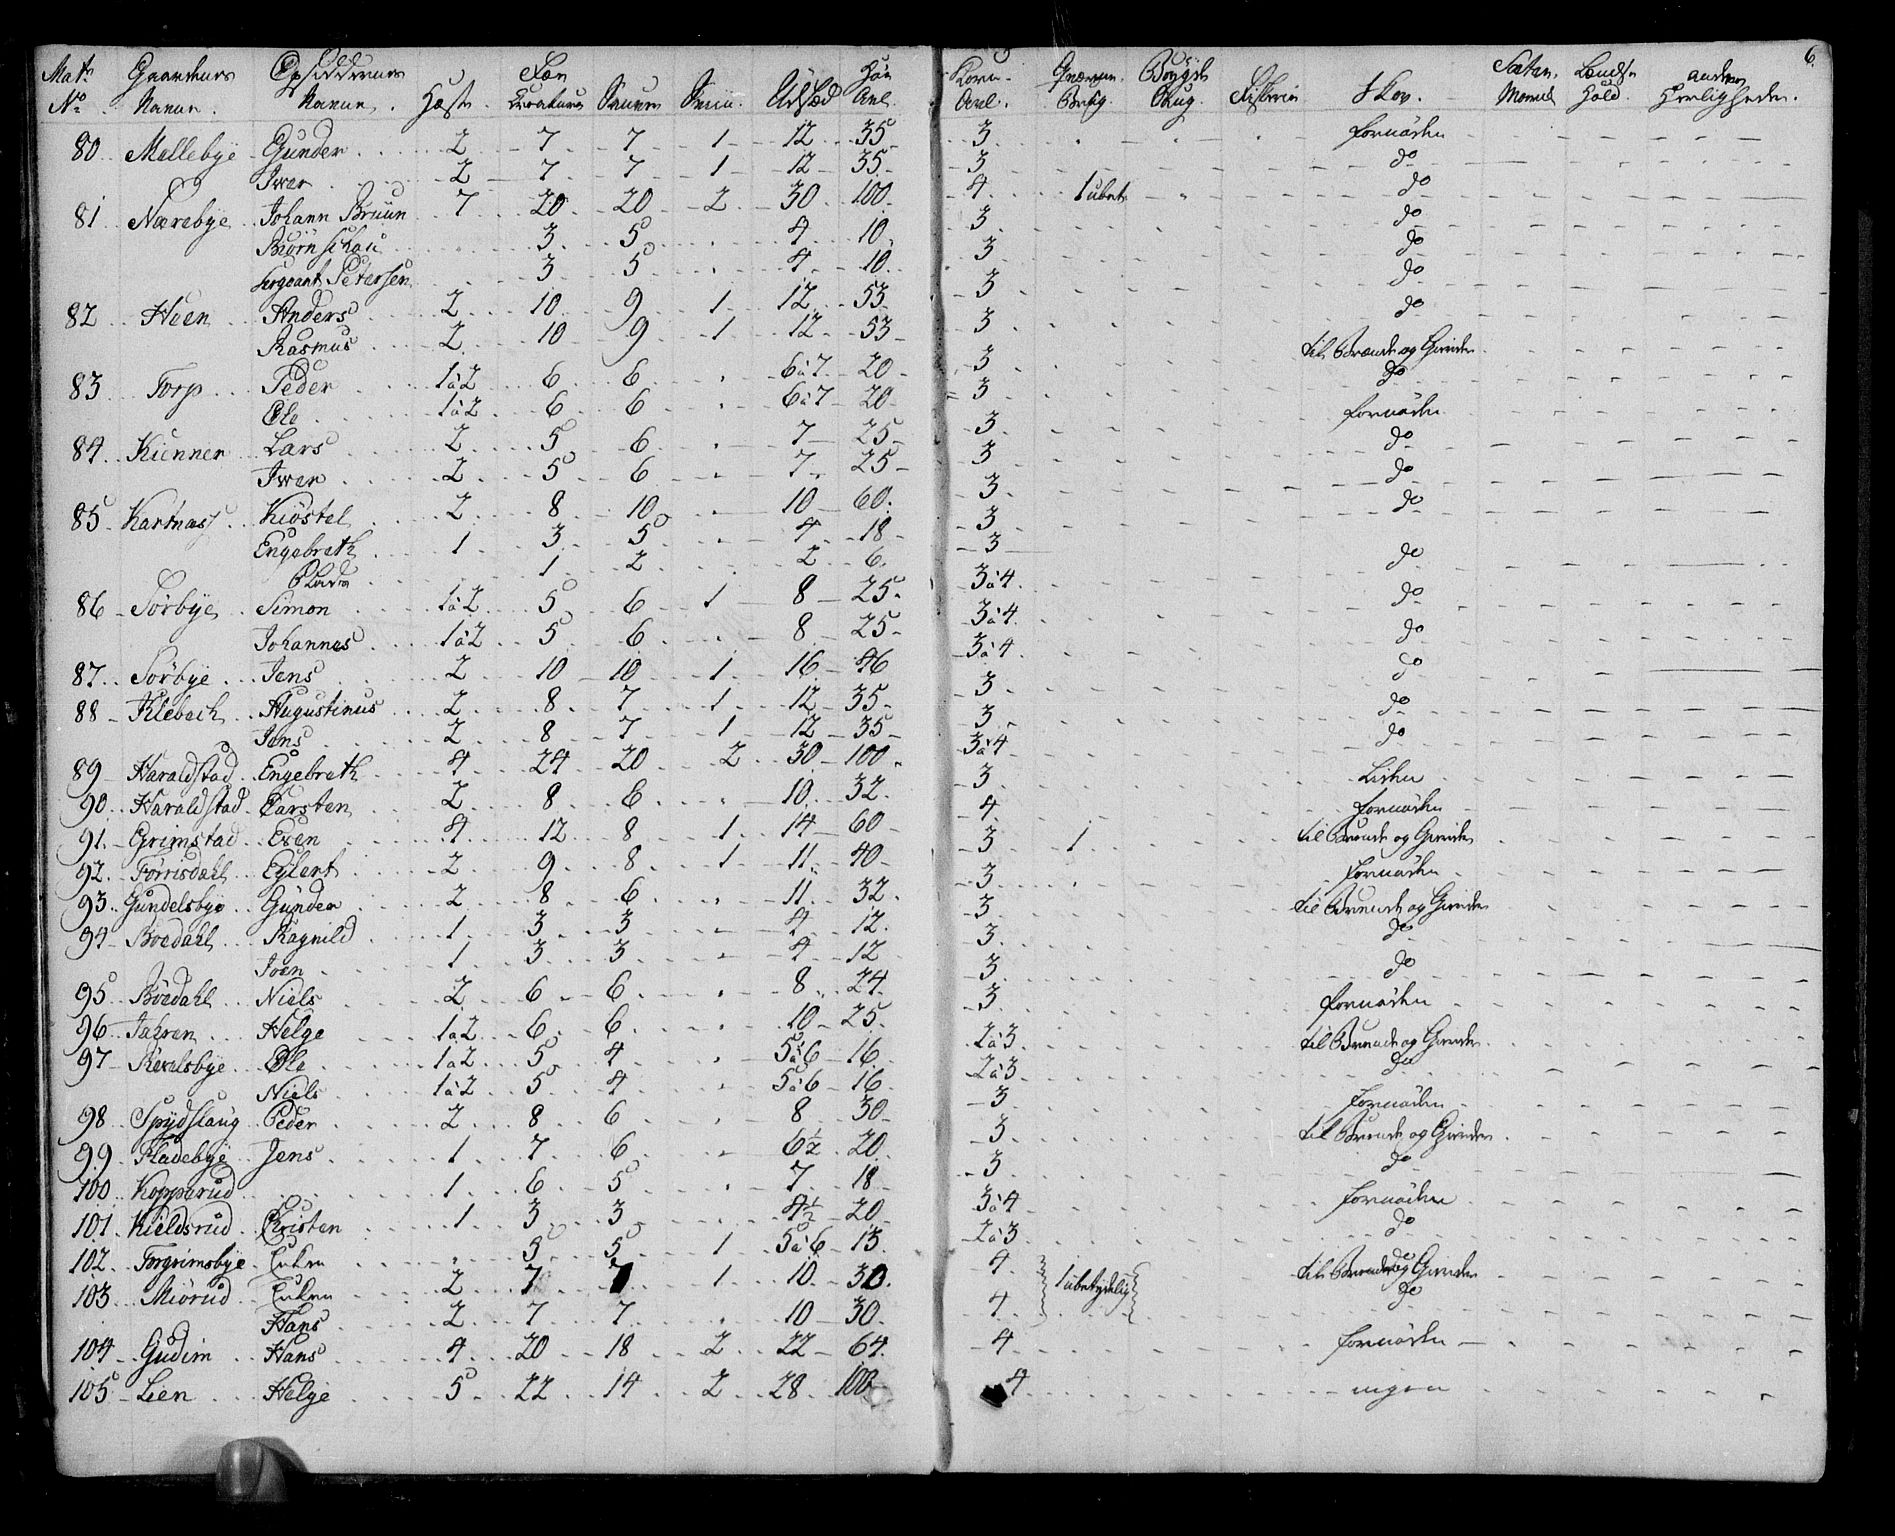 6.
Matr No. Gaardenes Navne. Opsiddernes Navne. Hæste. Fæe Kreature Sauer Sviin. Udsæd Høe Avl. Korn Avl. Qværne Brug. Bøygde Skug. Fiskerie Skov. Sæter Hould. andre Herligheder.
80 Mellebye Gunder 2 7 7 1 12 35 3 fornøden
Iver 2 7 7 1 12 35 3 do
81 Nærebye Johann Bruun 7 20 20 2 30 100 4 1 ubet. do
Biørn Schau 3 5 4 10 3 do
Sergeant Petersen 3 5 4 10 3 do
82 Heen Anders 2 10 9 1 12 53 3 do
Rasmus 2 10 9 1 12 53 3 do
83 Torp Peder 1 à 2 6 6 6 à 7 20 3 til Brænde og Gierder
Ole 1 à 2 6 6 6 à 7 20 3 do
84 Kienner Lars 2 5 6 7 25 3 fornøden
Iver 2 5 6 7 25 3 do
85 Kartnæss Kiøstel 2 8 10 10 60 3 do
Engebreth 1 3 5 4 18 3 do
1 2 2 6 3
86 Sørbye Simon 1 à 2 5 6 1 8 25 3 à 4 do
Johannes 1 à 2 5 6 8 25 3 à 4 do
87 Sørbye Jens 2 10 10 1 16 46 3 à 4 do
88 Klebech Augustinus 2 8 7 1 12 35 3 do
Jens 2 8 7 1 12 35 3 do
89 Haraldstad Engebreth 4 24 20 2 30 100 3 à 4 do
90 Haraldstad Carsten 2 8 6 10 32 3 Liden
91 Grimstad Even 4 12 8 1 14 60 4 fornøden
92 Torrisdahl Eylert 2 9 8 1 11 40 3 1 til Brænde og Gierder
93 Gundelsbye Gunder 2 8 6 11 32 3 fornøden
94 Bøedahl Ragnild 1 3 3 4 12 3 til Brænde og Gierder
Joen 1 3 3 4 12 3 do
95 Bøedahl Niels 2 6 6 8 24 3 do
96 Jahren Helge 1 à 2 6 6 10 25 3 fornøden
97 Revelsbye Ole 1 à 2 5 4 5 à 6 16 2 à 3 til Brænde og Gierder
Niels 1 à 2 5 4 5 à 6 16 2 à 3 do
98 Spydslaug Peder 2 8 6 8 30 3 fornøden
99 Fladebye Jens 1 7 6 6½ 20 3 til Brænde og Gierder
100 Kopperud 1 6 5 7 18 3 do
101 Kieldsrud Christen 1 3 3 4½ 20 3 à 4 fornøden
102 Torgrimsbye Enken 5 5 1 5 à 6 13 2 à 3 do
103 Miørud Enken 2 7 7 1 10 30 4 1 ubetydelig til Brænde og Gierder
Hans 2 7 7 10 30 4 do
104 Gudim Hans 4 20 18 2 22 64 4 fornøden
105 Lien Helge 5 22 14 2 28 100 4 ingen